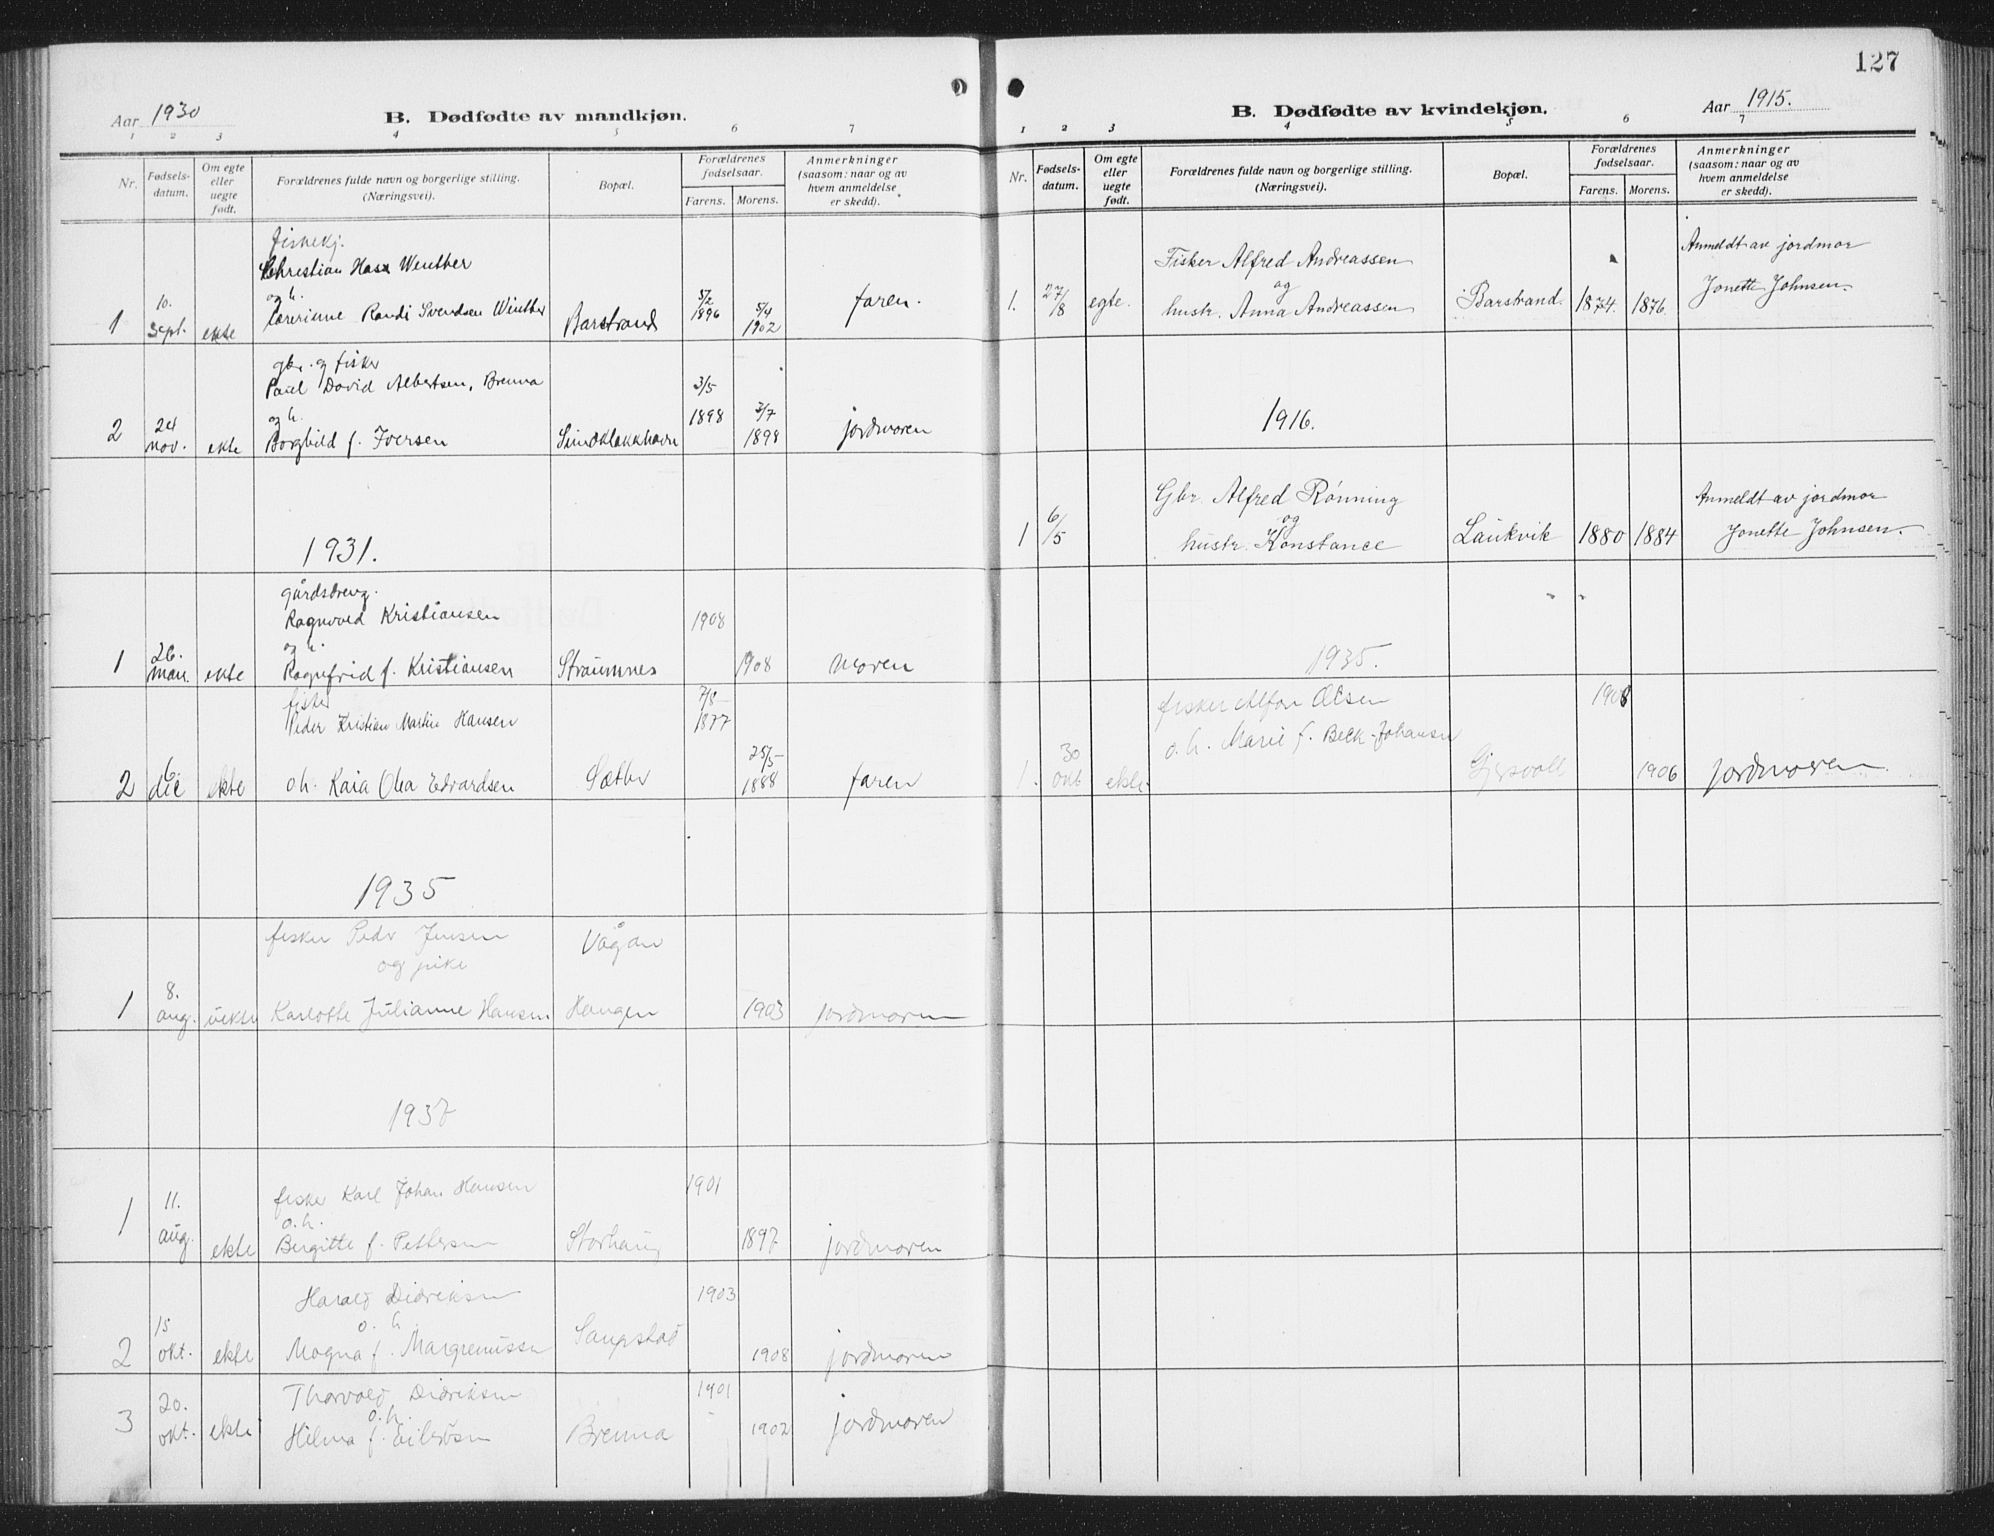 127
Aar 1930
B. Dødfødte av mandkjøn.
1 2 3 4 5 6 7
Nr. Fødsels-datum. Om egte eller uegte født. Forældrenes fulde navn og borgerlige stilling. (Næringsvei). Bopæl. Forældrenes fødselsaar. Farens. Morens. Anmerkninger (saasom: naar og av hvem anmeldelse er skedd).
Christian Winther
og h.
Randi Svendsen Winther
1 10. Sept. ekte Barstrand 5/2 1896 5/4 1902 faren.
gbr. og fisker
Paul David Albertsen, Brenna
og h.
Borghild f. Iversen
2 24 nov. ekte 3/5 1898 3/7 1898 jordmoren
1931.
gårdsdreng.
Ragnvald Kristiansen 1908
og h.
1 26. ekte Ragnfrid f. Kristiansen Straumnes 1908 moren
fisker
Peder Kristian Martin Hansen 7/8 1877
2 6 dec ekte o.h. Kaia Olea Edvardsen Sætter 25/5 1888 faren
1935
fisker Peder Jensen Vågan
og pike
1 8. aug. uekte Karlotte Julianne Hansen Haugen 1903 jordmoren
1937
fisker Karl Johan Hansen 1901
o.h.
1 11. aug. ekte Birgitte f. Pettersen Storhaug 1897 jordmoren
Harald Didriksen 1903
o. h
2 15 okt. ekte Magna f. 1908 jordmoren
Thorvald Didriksen 1901
o.h.
3 20. okt. ekte Hilma f. Brenna 1902 jordmoren
Aar 1915.
B. Dødfødte av kvindekjøn.
1 2 3 4 5 6 7
Nr. Fødsels-datum. Om egte eller uegte født. Forældrenes fulde navn og borgerlige stilling. (Næringsvei). Bopæl. Forældrenes fødselsaar. Farens. Morens. Anmerkninger (saasom: naar og av hvem anmeldelse er skedd).
Fisker Alfred Andreassen Anmeldt av jordmor
og
1. 27/8 egte. hustr. Anna Andreassen Barstrand. 1874. 1876. Jonette Johnsen.
1916.
Gbr. Alfred Rønning Anmeldt av jordmor
og
1 6/5 hustr. Konstance Laukvik 1880 1884 Jonette Johnsen.
1935.
fisker Alfon Olsen 1908
o.h. Marie f. Beck-Johansen
1. 30 okt ekte. 1906 jordmoren